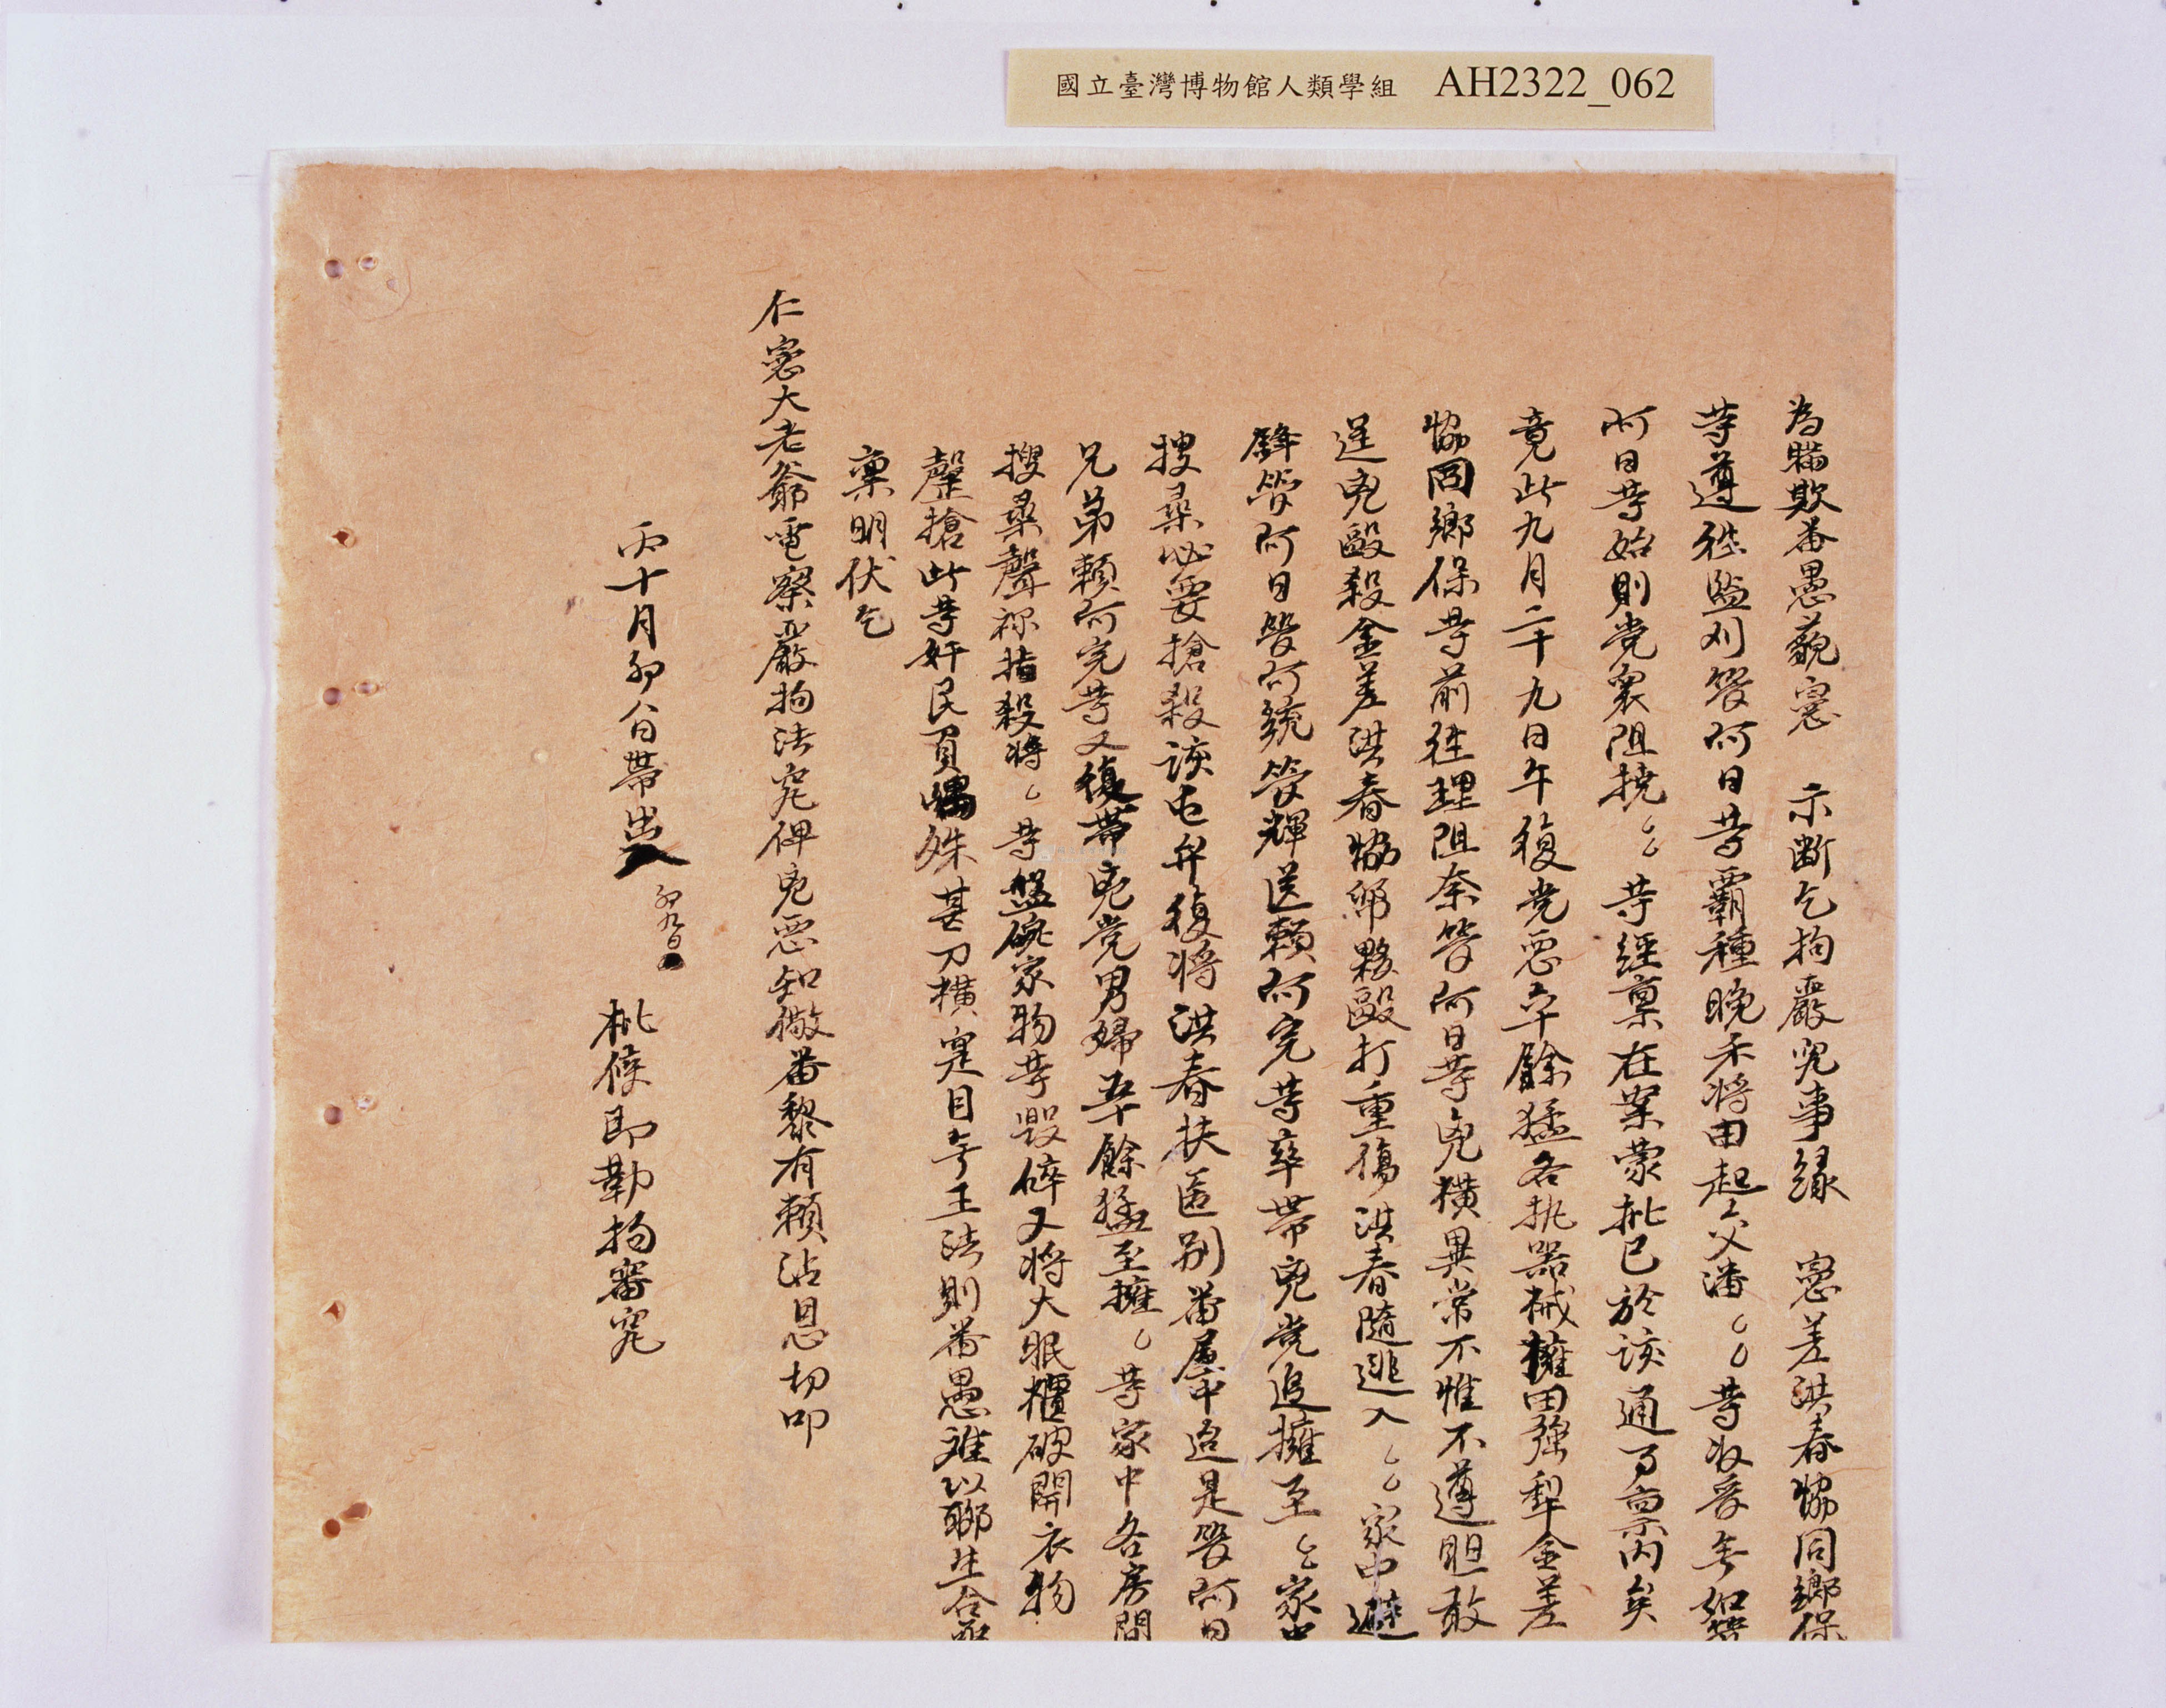 國立臺灣博物館人類學組 AH2322_062
為瞞欺番愚藐憲 示斷乞拘嚴究事緣 憲差洪春協同鄉保
等遵往監刈管阿日等霸種晚禾將田起交潘〻〻等收管無如
阿日等始則党衆阻撓〻等經稟在案蒙批已於該通事稟內矣
竟此九月二十九日午復党惡卒餘猛各执器械擁田強犁金差
協同鄉保等前往理阻奈管阿日等兇橫異常不惟不遵胆敢
逞兇毆殺金差洪春協邻夥毆打重傷洪春隨逃入〻〻家中避
鋒管阿日管阿統管輝送賴阿完等率帶兇党追擁至〻家中
搜尋必要搶殺該屯弁復將洪春扶匿別番厝中迨是管阿日
兄弟賴阿完等又復帶兇党男婦卒餘猛至擁〻等家中各房間
搜尋聲称指殺將〻等盤碗家物等毀碎又將大眠櫃破開衣物
罄搶此等奸民負嵎殊甚刀橫寔目无王法則番愚难以聊生合
稟明伏乞
仁憲大老爺電察嚴拘法究俾兇惡知儆番黎有賴沾恩切叩
丙十月初八日帶出入
初九日
批候即勒拘審究